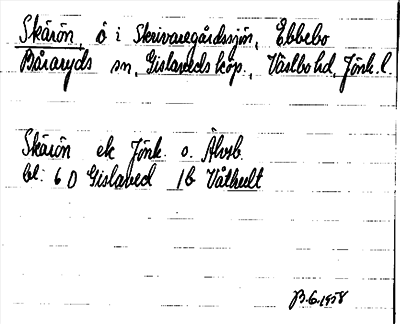 Skärön, ö i Skrivaregårdssjön, Ebbebo
Båraryds sn, Gislaveds köp., Västbo hd, Jönk. l.
Skärön ek Jönk. o. Älvsb.
bl: 6 D Gislaved 1b Våthult
B. G. 1958